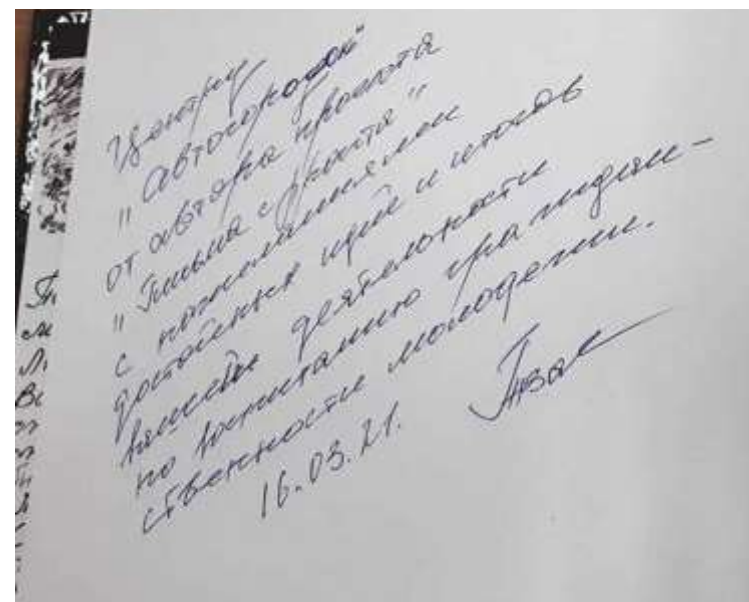 Центру
"Автогородок"
от автора проекта
"Письма с фронта"
с пожеланиями
достойных идей и итогов
вашей деятельности
по воспитанию граждан-
ственности молодежи.
16.03.21.